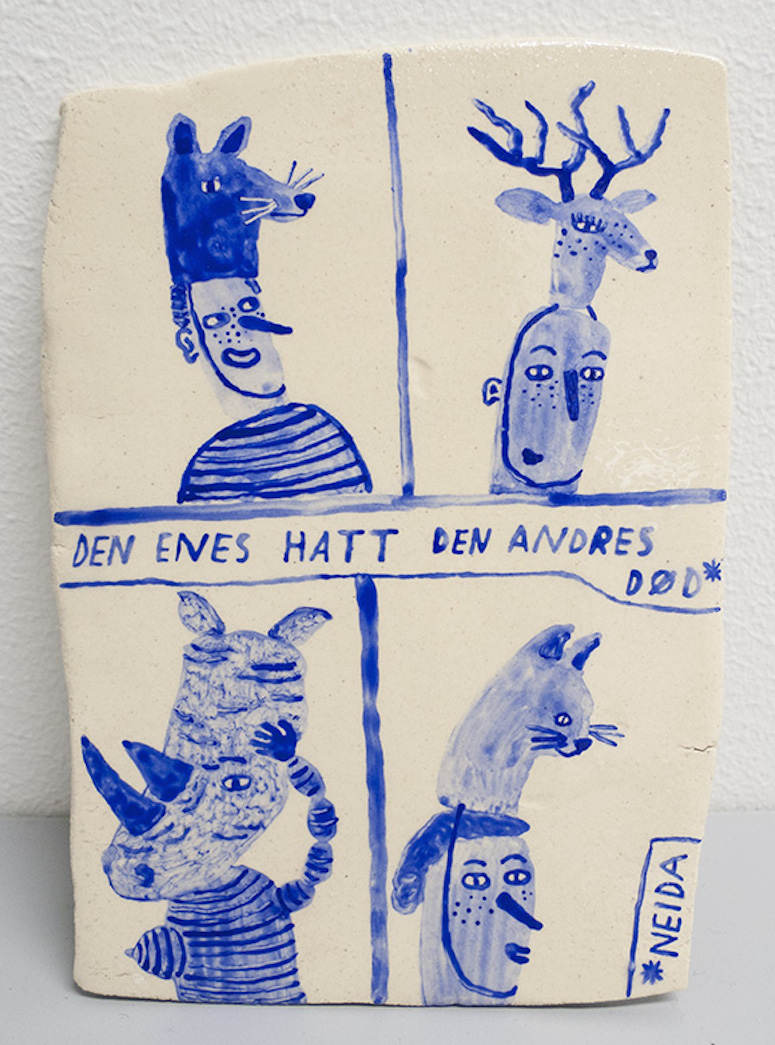 DEN ENES HATT DEN ANDRES
DØD*
*NEIDA